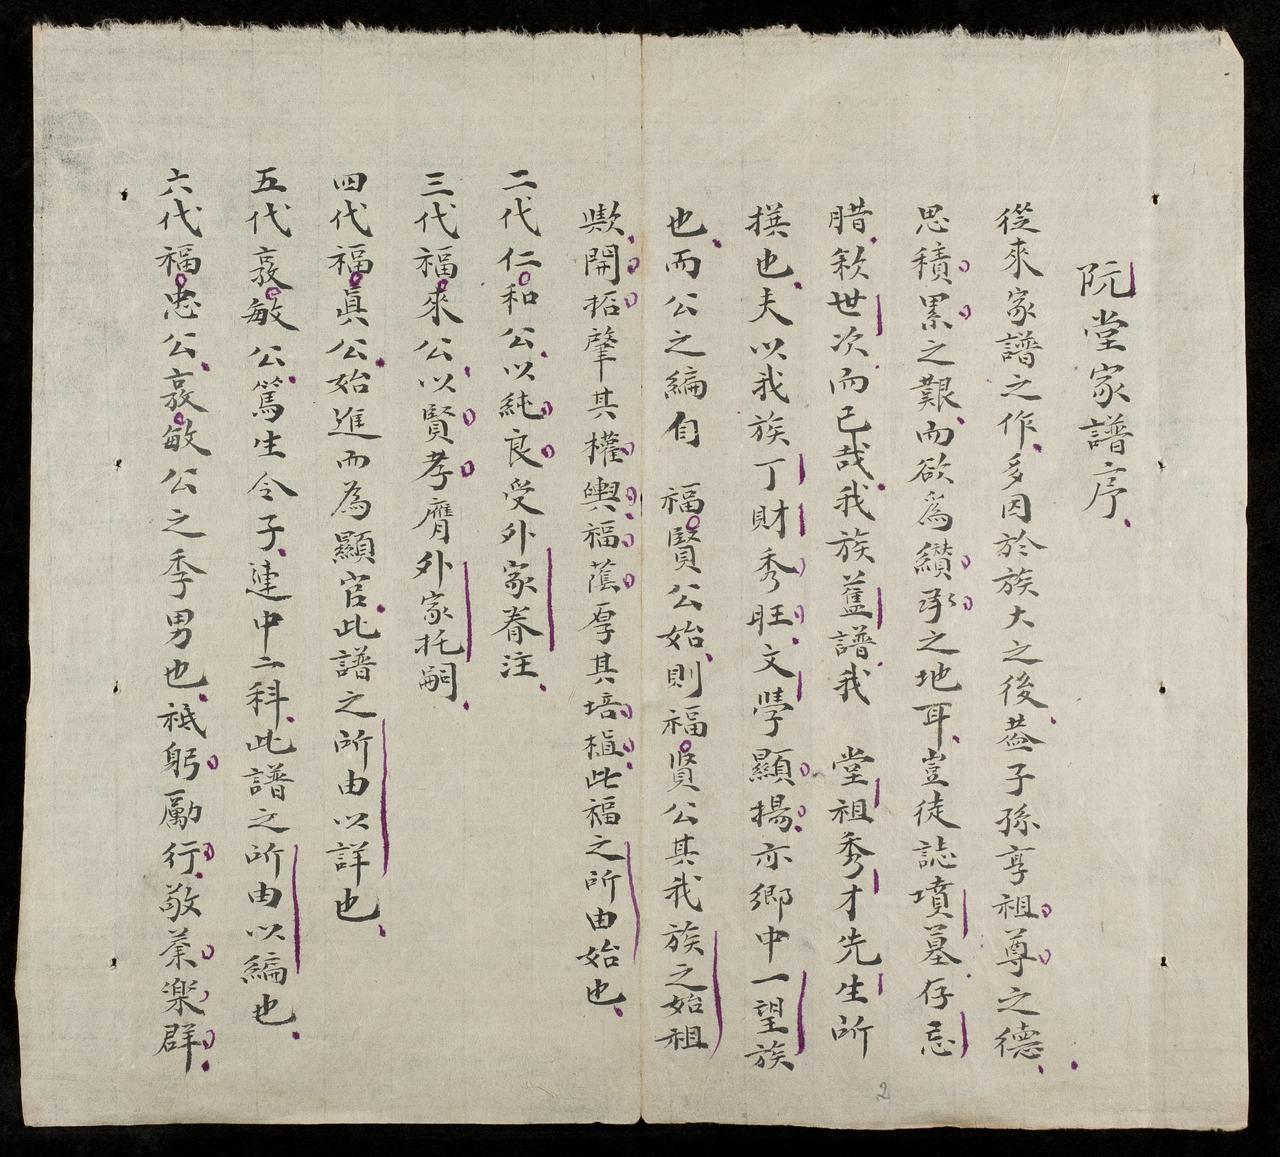 阮堂家譜序
從來家譜之作多因於族大之後蓋子孫享祖尊之德
思積累之艱而欲爲纘承之地耳豈徒誌墳墓存忌
腊敘世次而已哉我族舊譜我 堂祖秀才先生所
撰也夫以我族丁財秀旺文學顯揚亦鄉中一望族
也而公之編自 福賢公始則福賢公其我族之始祖
歟開拓肇其權輿福蔭厚其培植此福之所由始也
二代仁和公以純良受外家眷注
三代福來公以賢孝膺外家托嗣
四代福眞公始進而為顯宦此譜之所由以詳也
五代敦敏公篤生令子連中二科此譜之所由以編也
六代福忠公敦敏公之季男也祗躬勵行敬業樂群
2